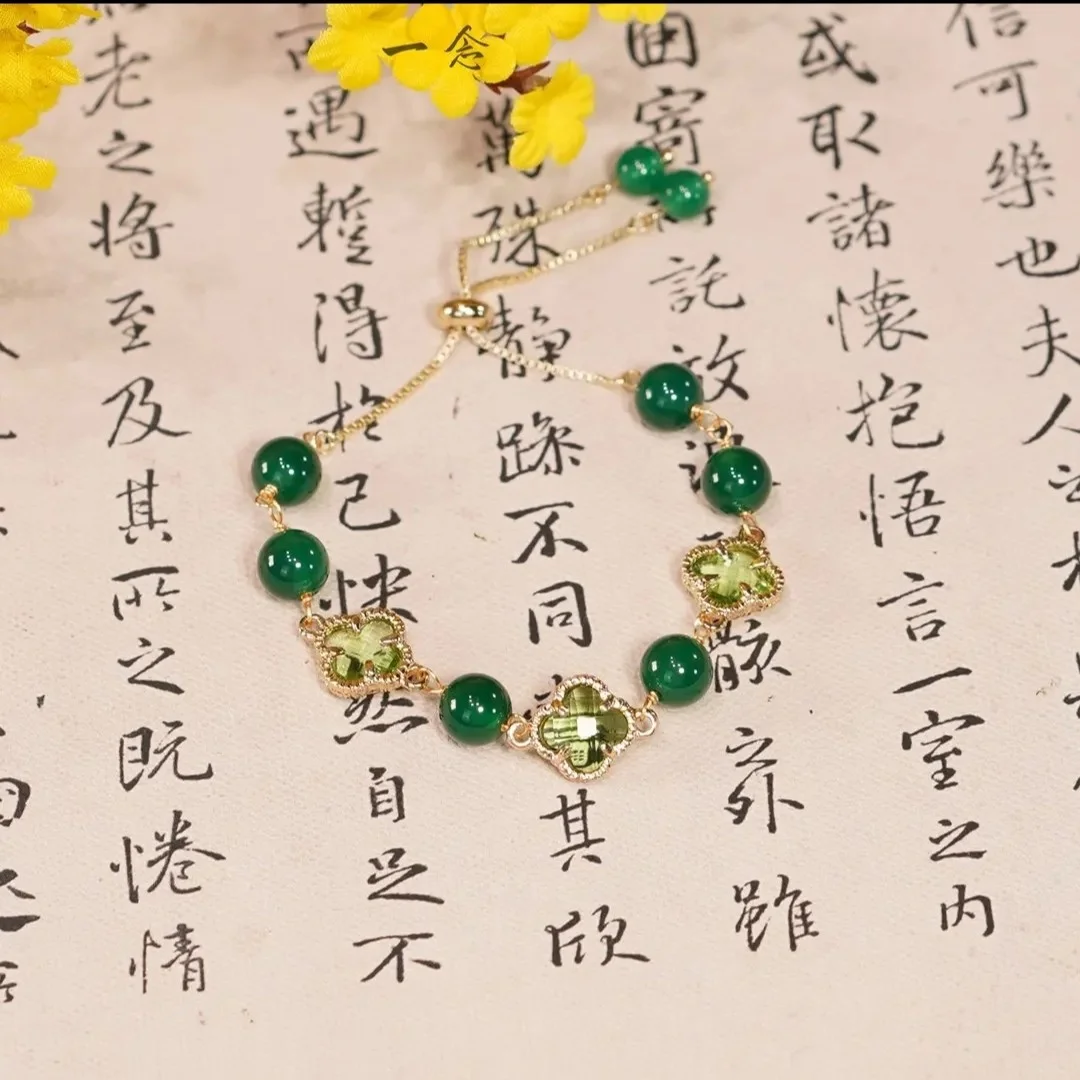 一念
信可樂也夫人
或取諸懷抱悟言一室之内
囙寄託放骸之外雖
萬殊静躁不同其欣
遇蹔得於己快然自足不
老之將至及其所之既惓情